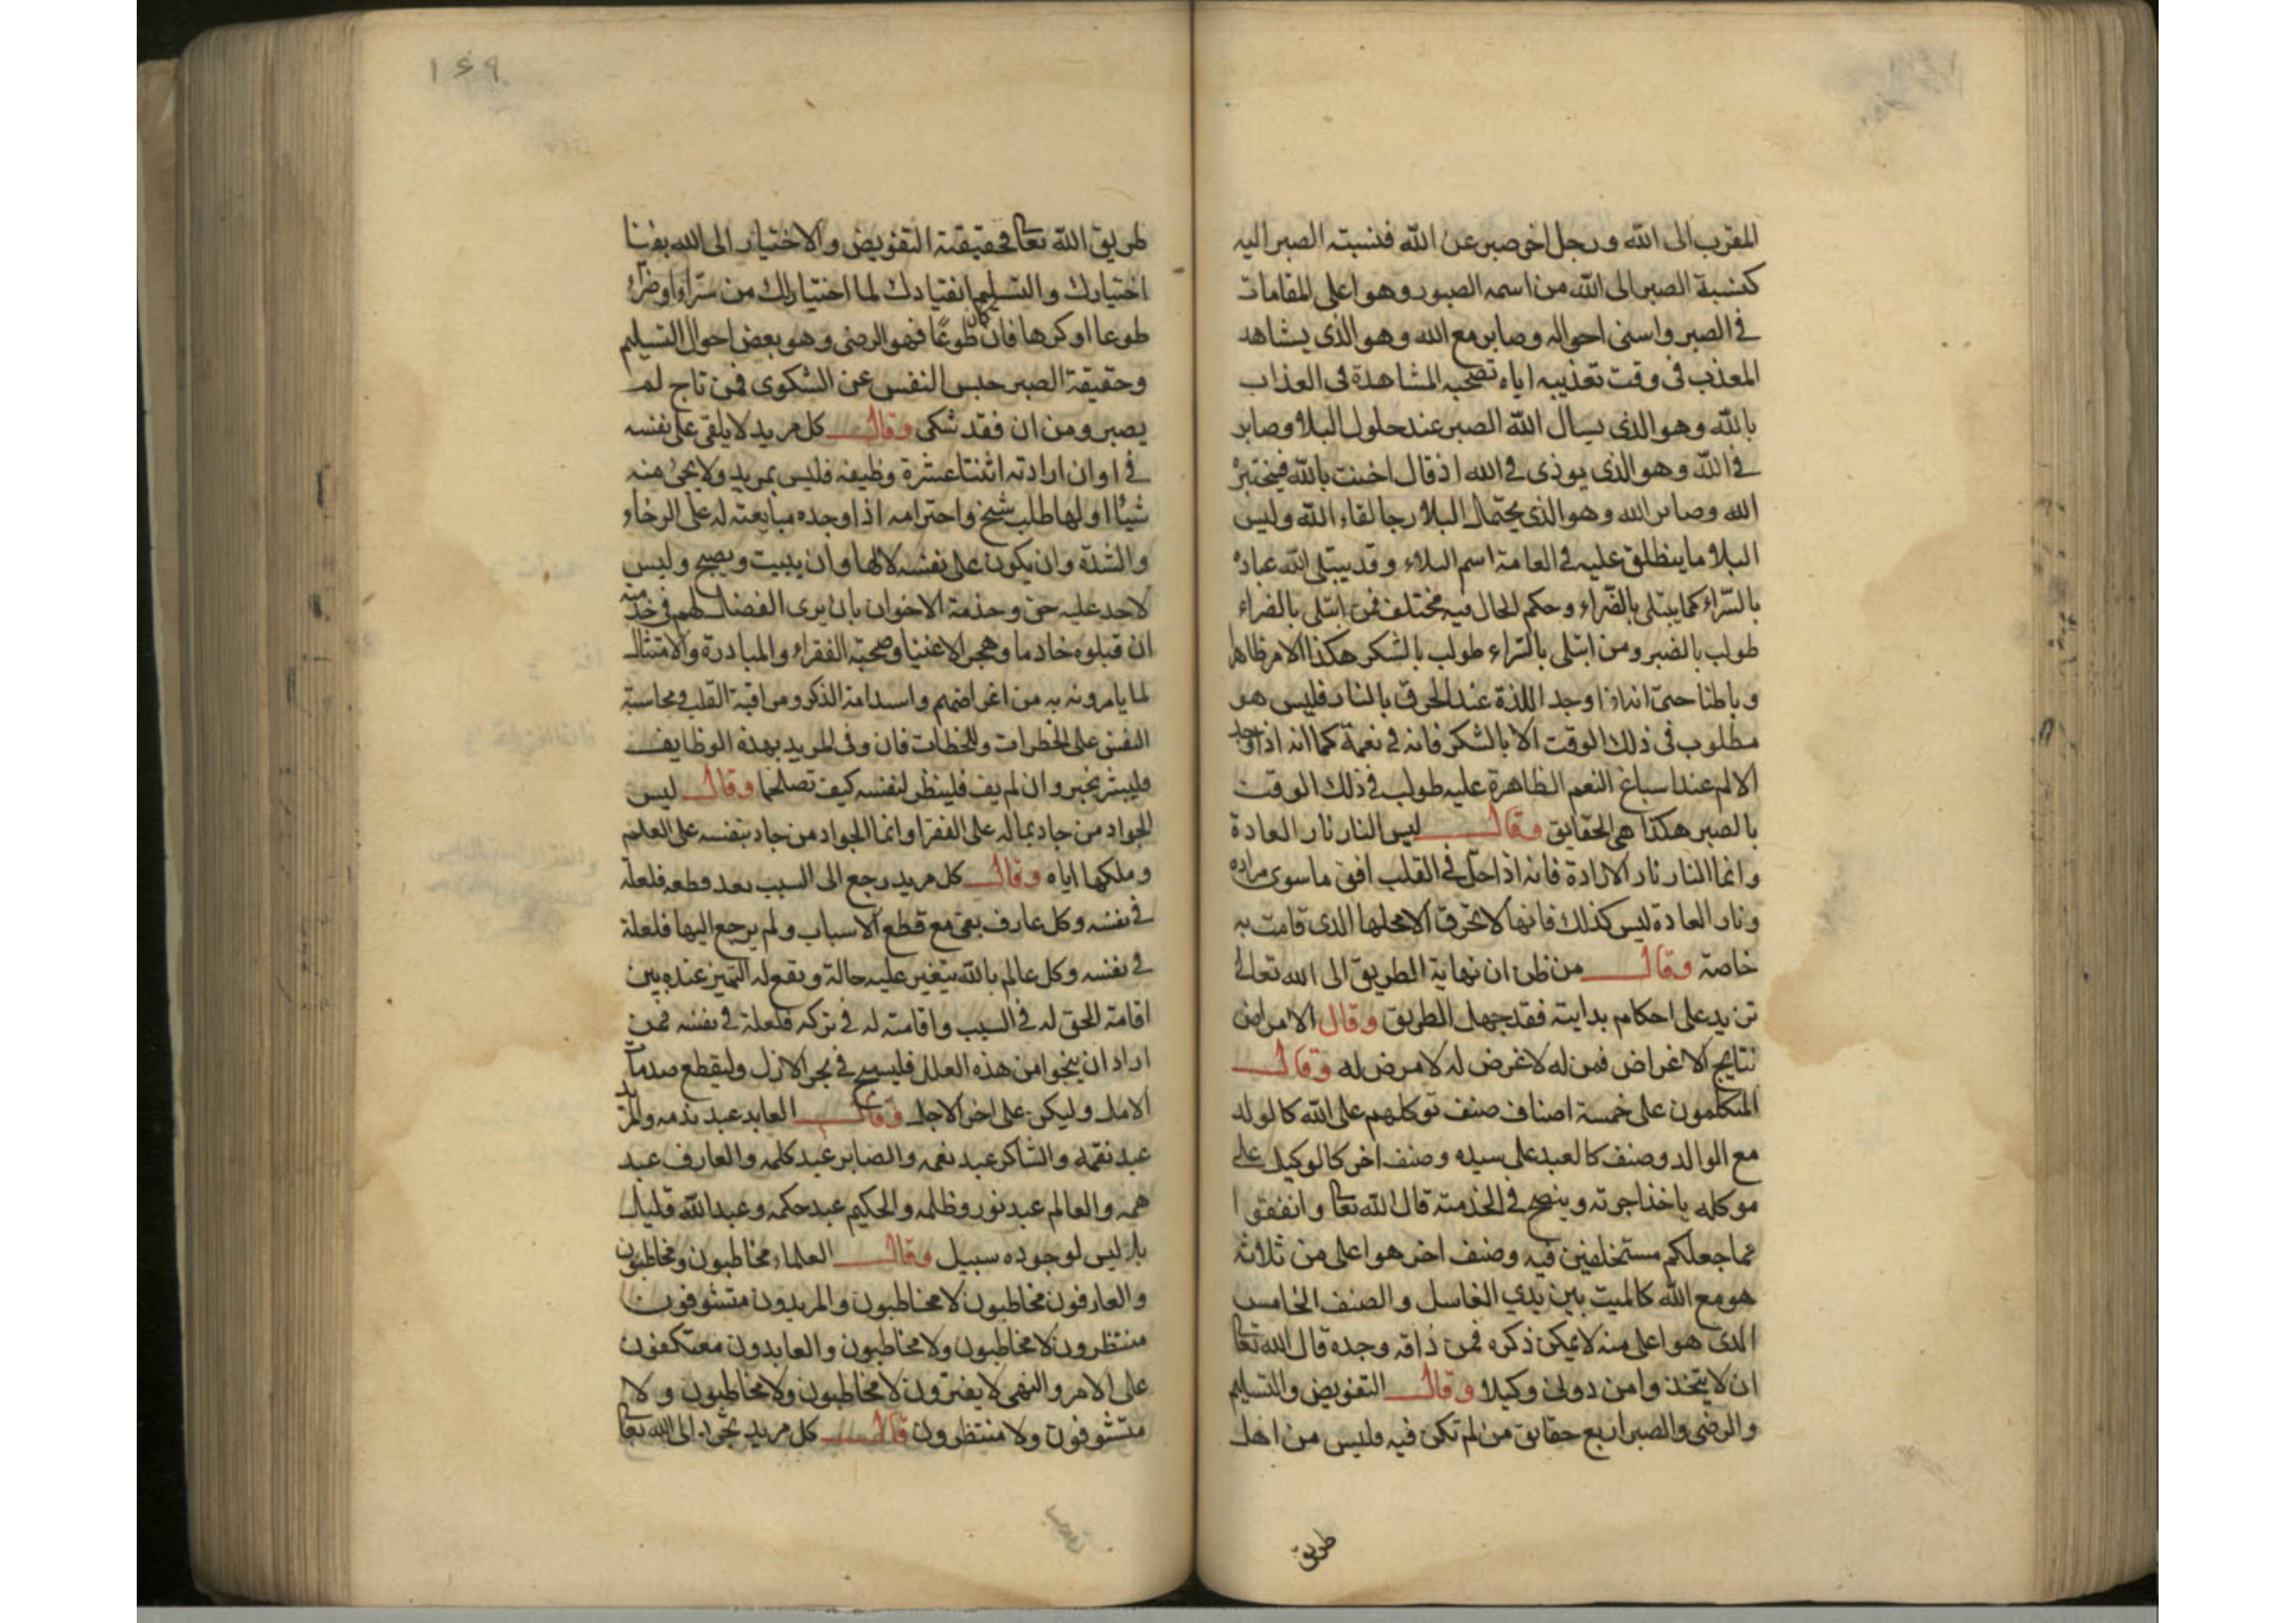 المقرب الى الله ورجل اخر صبر عن الله فنسبته الصبر اليه
كنسبة الصبر الى الله من اسمه الصبور وهو اعلى المقامات
في الصبر واسنى احواله وصابر مع الله وهو الذى يشاهد
المعذب فى وقت تعذيبه اياه تصحبه المشاهدة فى العذاب
بالله وهو الذى يسال الله الصبر عند حلول البلا وصابر
في الله وهو الذى يوذى في الله اذ قال اخنت بالله فيختبره
الله وصابر لله وهو الذى يحتمل البلا رجا لقاء الله وليس
البلا ما ينطلق عليه في العامة اسم البلاء وقد يبتلى الله عباده
بالسّراء كما يبتلى بالضّراء وحكم الحال فيه مختلف فمن ابتلى بالضراء
طولب بالصبر ومن ابتلى بالسّراء طولب بالشكر هكذا الامر ظاهرا
وباطنا حتى انه اذا وجد اللذة عند الحرق بالنار فليس هو
مطلوب فى ذلك الوقت الا بالشكر فانه في نعمة كما انه اذا وجد
الالم عند اسباغ النعم الظاهرة عليه طولب في ذلك الوقت
بالصبر هكذا هى الحقايق وقال ليس النار نار العادة
وانما النار نار الارادة فانه اذا حل في القلب افنى ما سوى مراده
ونار العادة ليس كذلك فانها لا تحرق الا محلها الذى قامت به
خاصة وقال من ظن ان نهاية الطريق الى الله تعالى
تزيد على احكام بدايته فقد جهل الطريق وقال الامراض
نتايج الاغراض فمن له لا غرض له لا مرض له وقال
المتكلمون على خمسة اصناف صنف توكلهم على الله كالولد
مع الوالد وصنف كالعبد على سيده وصنف اخر كالوكيل على
موكله ياخذ اجرته وينصح في الخدمته قال الله تعا وانفقوا
مما جعلكم مستخلفين فيه وصنف اخر هو اعلى من ثلاثه
هو مع الله كالميت بين يدي الغاسل والصنف الخامس
الذى هو اعلى منه لا يمكن ذكره فمن ذاقه وجده قال الله تعا
ان لا يتخذوا من دونى وكيلا وقال التفويض والتسليم
والرضى والصبر اربع حقايق من لم تكن فيه فليس من اهل
طريق
١٤٩
طريق الله تعا فحقيقته التفويض والاختيار الى الله بفنا
اختيارك والتسليم انقيادك لما اختيارلك من سرّاء او ضرّاء
طوعا او كرها فان كان طوعًا فهو الرضى وهو بعض احوال التسليم
وحقيقة الصبر حبس النفس عن الشكوى فمن تاج لم
يصبر ومن ان فقد شكى وقال كل مريد لا يلقى على نفسه
في اوان ارادته اثنتا عشرة وظيفه فليس بمريد ولا يجئ منه
شيًا اولها طلب شيخ واحترامه اذا وجده مبايعته له على الرخاء
والشدّة وان يكون على نفسه لا لها وان يبيت ويصبح وليس
لاحد عليه حق وخدمة الاخوان بان يرى الفضل لهم في خدمته
ان قبلوه خادما وهجر الاغنيا وصحبة الفقراء والمبادرة والامتثال
لما يامرونه به من اغراضهم واستدامة الذكر ومراقبة القلب ومحاسبة
النفس على الخطرات واللحظات فان وفى المريد بهذه الوظايف
فليبشر بخير وان لم يف فلينظر لنفسه كيف تصلحها وقال ليس
الجواد من جاد بماله على الفقرا وانما الجواد من جاد بنفسه على العلم
وملكها اياه وقال كل مريد رجع الى السبب بعد قطعه فلعلة
في نفسه وكل عارف بقى مع قطع الاسباب ولم يرجع اليها فلعلة
في نفسه وكل عالم بالله يتغير عليه حالة ويقع له التميز عنده بين
اقامة الحق له في السبب واقامته له في تركه فلعلة في نفسه فمن
اراد ان ينجوا من هذه العلل فليسبح في بحر الازل وليقطع صدمات
الامل وليكن على اخر الاجل وقال العابد عبد والمريد
عبد نقمه والشاكر عبد نعمه والصابر عبد كلمه والعارف عبد
همه والعالم عبد نور وظلمه والحكيم عبد حكمه وعبد الله قليل
بل ليس لوجوده سبيل وقال العلماء مخاطبون ومخاطبون
والعارفون مخاطبون لا مخاطبون والمريدون متشوفون
منتظرون لا مخاطبون ولا مخاطبون والعابدون معتكفون
على الامر والنهى لا يفترون لا مخاطبون ولا مخاطبون ولا
متشوفون ولا منتظرون قال كل مريد تجرد الى الله تعا